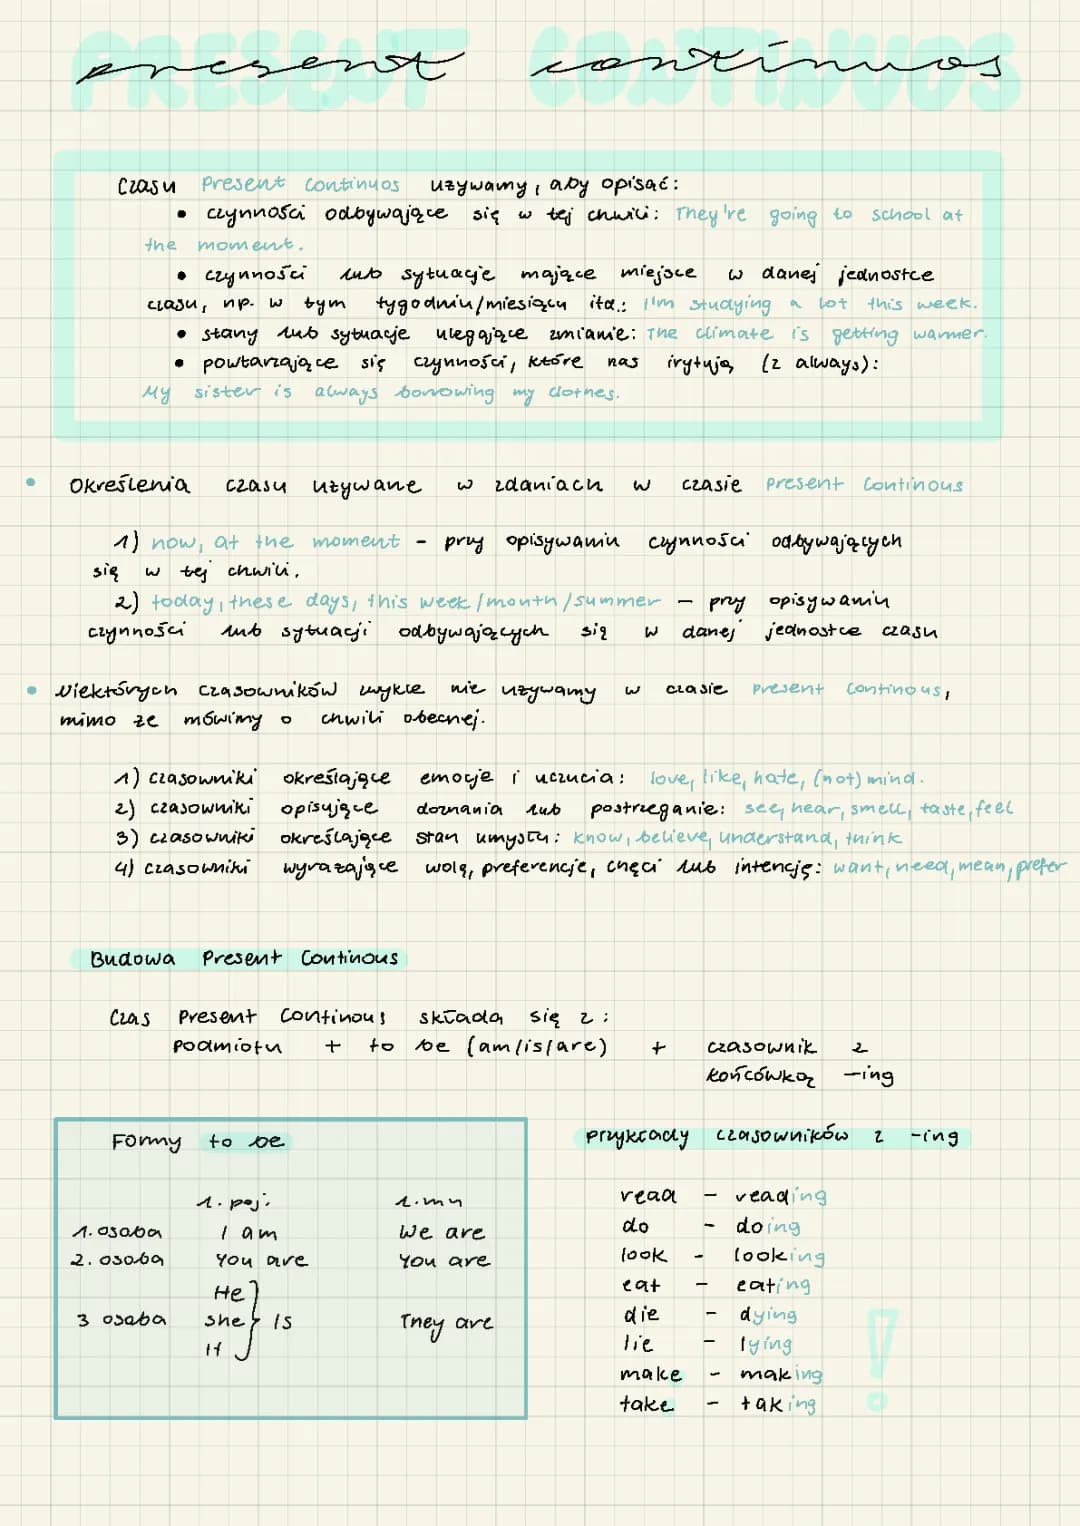 present continuos
Czasu Present Continuos używamy, aby opisać:
• czynności odbywające się w tej chwili: They're going to school at
the moment.
• czynności lub sytuacje mające miejsce w danej jednostce
czasu, np. w tym tygodniu/miesiącu itd.: I'm studying a lot this week.
• stany lub sytuacje ulegające zmianie: The climate is getting warmer.
• powtarzające się czynności, które nas irytują (z always):
My sister is always borrowing my clothes.
• Określenia czasu używane w zdaniach w czasie Present Continous
1) now, at the moment - przy opisywaniu czynności odbywających
się w tej chwili.
2) today, these days, this week/month/summer - przy opisywaniu
czynności lub sytuacji odbywających się w danej jednostce czasu
• Niektórych czasowników zwykle nie używamy w czasie Present Continous,
mimo że mówimy o chwili obecnej.
1) czasowniki określające emocje i uczucia: love, like, hate, (not) mind.
2) czasowniki opisujące doznania lub postrzeganie: see, hear, smell, taste, feel
3) czasowniki określające stan umysłu: know, believe, understand, think
4) czasowniki wyrażające wolę, preferencje, chęci lub intencję: want, need, mean, prefer
Budowa Present Continous
Czas Present Continous składa się z:
podmiotu + to be (am/is/are) + czasownik z
końcówką -ing
Formy to be
l. poj. l. mn
1. osoba I am We are
2. osoba You are You are
He
3 osoba she } is They are
it
przykłady czasowników z -ing
read - reading
do - doing
look - looking
eat - eating
die - dying
lie - lying
make - making
take - taking
!